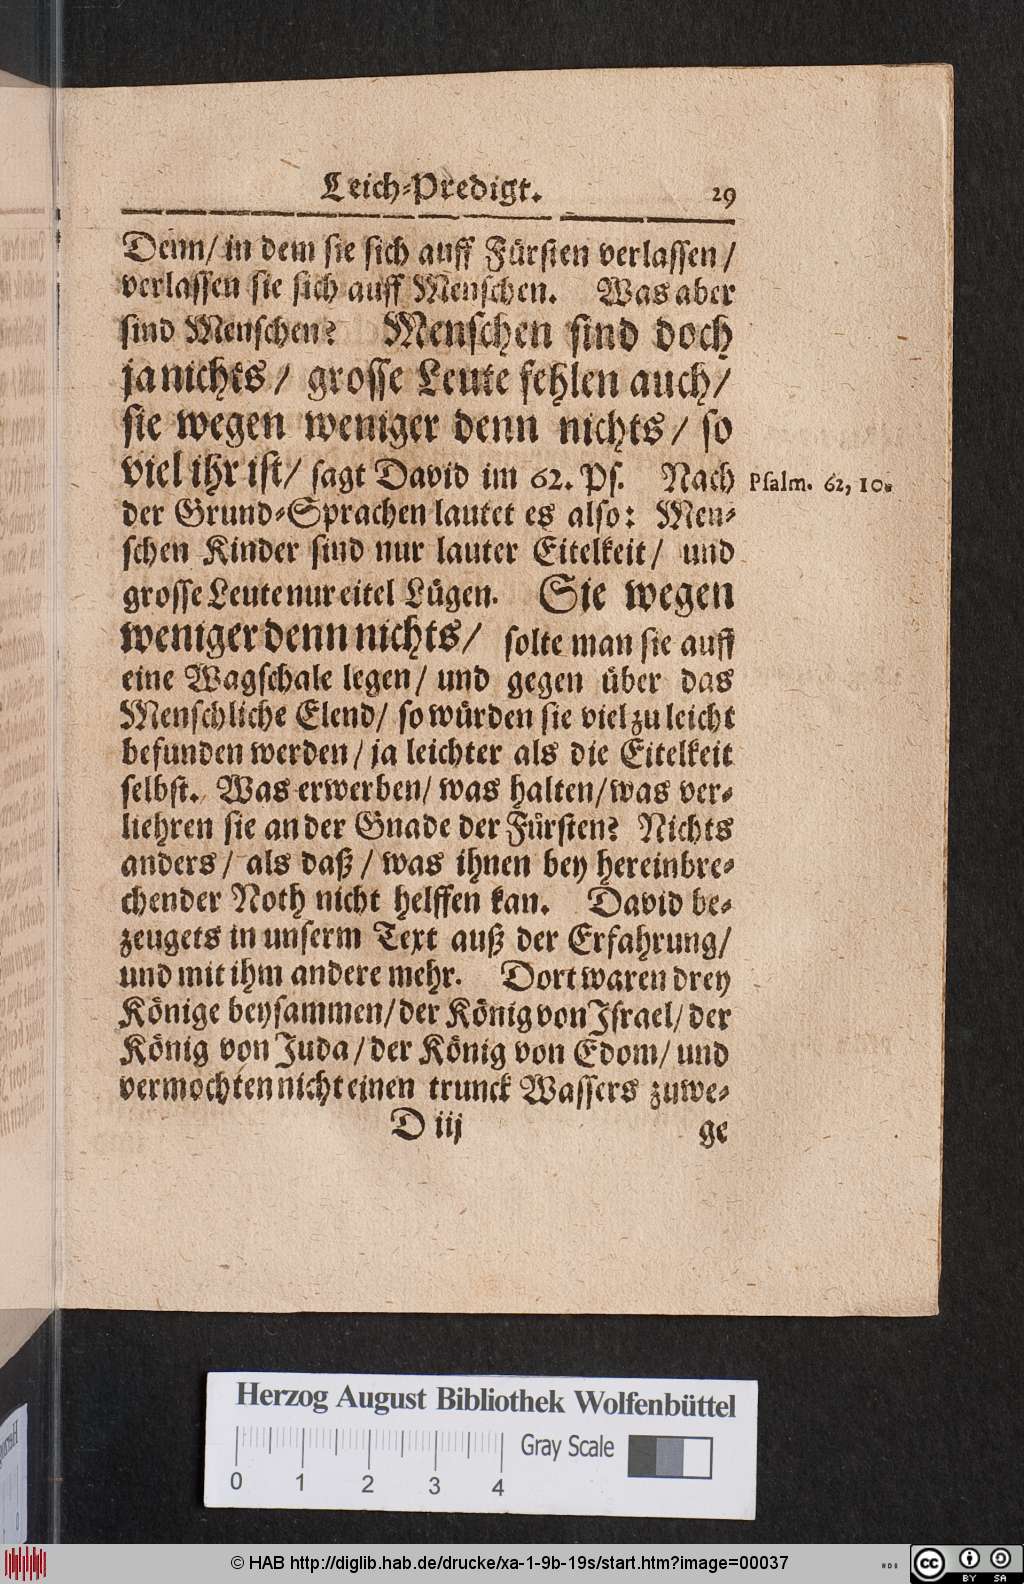 Leich-Predigt. 29
Denn/ in dem sie sich auff Fürsten verlassen/
verlassen sie sich auff Menschen. Was aber
sind Menschen? Menschen sind doch
ja nichts/ grosse Leute fehlen auch/
sie wegen weniger denn nichts/ so
viel ihr ist/ sagt David im 62. Ps. Nach Psalm. 62, 10.
der Grund-Sprachen lautet es also: Men-
schen Kinder sind nur lauter Eitelkeit/ und
grosse Leute nur eitel Lügen. Sie wegen
weniger denn nichts/ solte man sie auff
eine Wagschale legen/ und gegen über das
Menschliche Elend/ so würden sie viel zu leicht
befunden werden/ ja leichter als die Eitelkeit
selbst. Was erwerben/ was halten/ was ver-
liehren sie an der Gnade der Fürsten? Nichts
anders/ als daß/ was ihnen bey hereinbre-
chender Noth nicht helffen kan. David be-
zeugets in unserm Text auß der Erfahrung/
und mit ihm andere mehr. Dort waren drey
Könige beysammen/ der König von Israel/ der
König von Juda/ der König von Edom/ und
vermochten nicht einen trunck Wassers zuwe-
D iij ge
Herzog August Bibliothek Wolfenbüttel
Gray Scale
0 1 2 3 4
© HAB http://diglib.hab.de/drucke/xa-1-9b-19s/start.htm?image=00037
cc BY SA